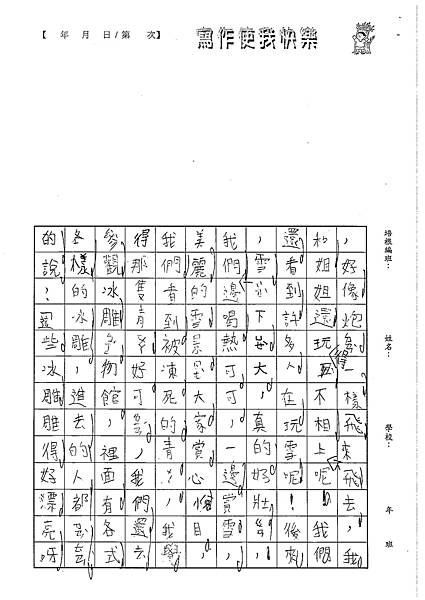 【 年 月 日/第 次】
寫作使我快樂
培根編班：
姓名：
學校：
年 班
，好像炮彈一樣飛來飛去，我
和姐姐還玩得不相上呢我們
還看到許多人在玩雪呢！後來
，雪下大，真的好壯
我們邊喝熱可可，一邊賞雪，
美麗的雪景大家賞心悅目，
我們看到被凍死的青
得那隻青好可
參觀冰雕館，裡面有各式
各樣的冰雕，進去的人都
的說：這些冰雕雕得好漂亮呀